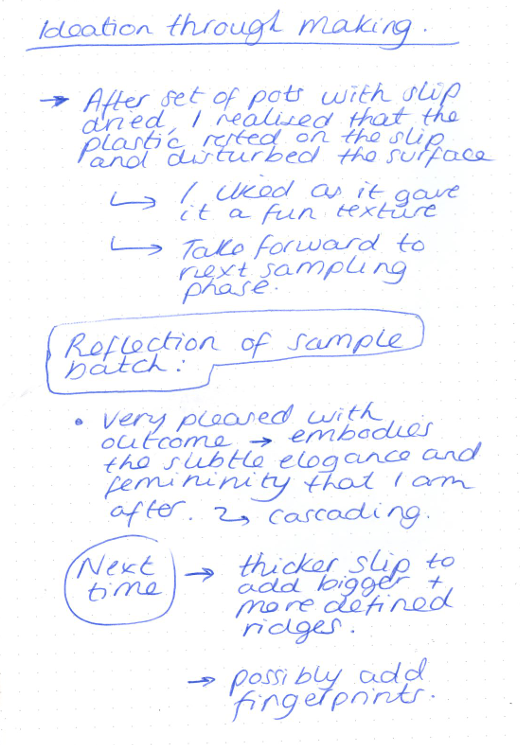 Ideation through making.
→ After set of pots with slip
dried, I realised that the
plastic rested on the slip
and disturbed the surface
↳ I liked as it gave
it a fun texture
↳ Take forward to
next sampling
phase.
Reflection of sample
batch:
• Very pleased with
outcome → embodies
the subtle elegance and
femininity that I am
after. ↳ cascading.
Next
time → thicker slip to
add bigger +
more defined
ridges.
→ possibly add
fingerprints.